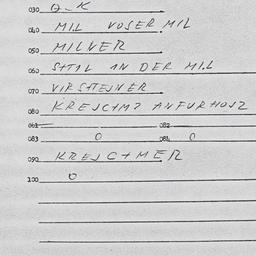 030 G-K
040 MIL VOSER MIL
050 MILNER
060 STTL AN DER MIL
070 VIRSTEINER
080 KREJCHM? ANFURHOLZ
081 082
083 0 084 0
090 KREJCHMER
100 0